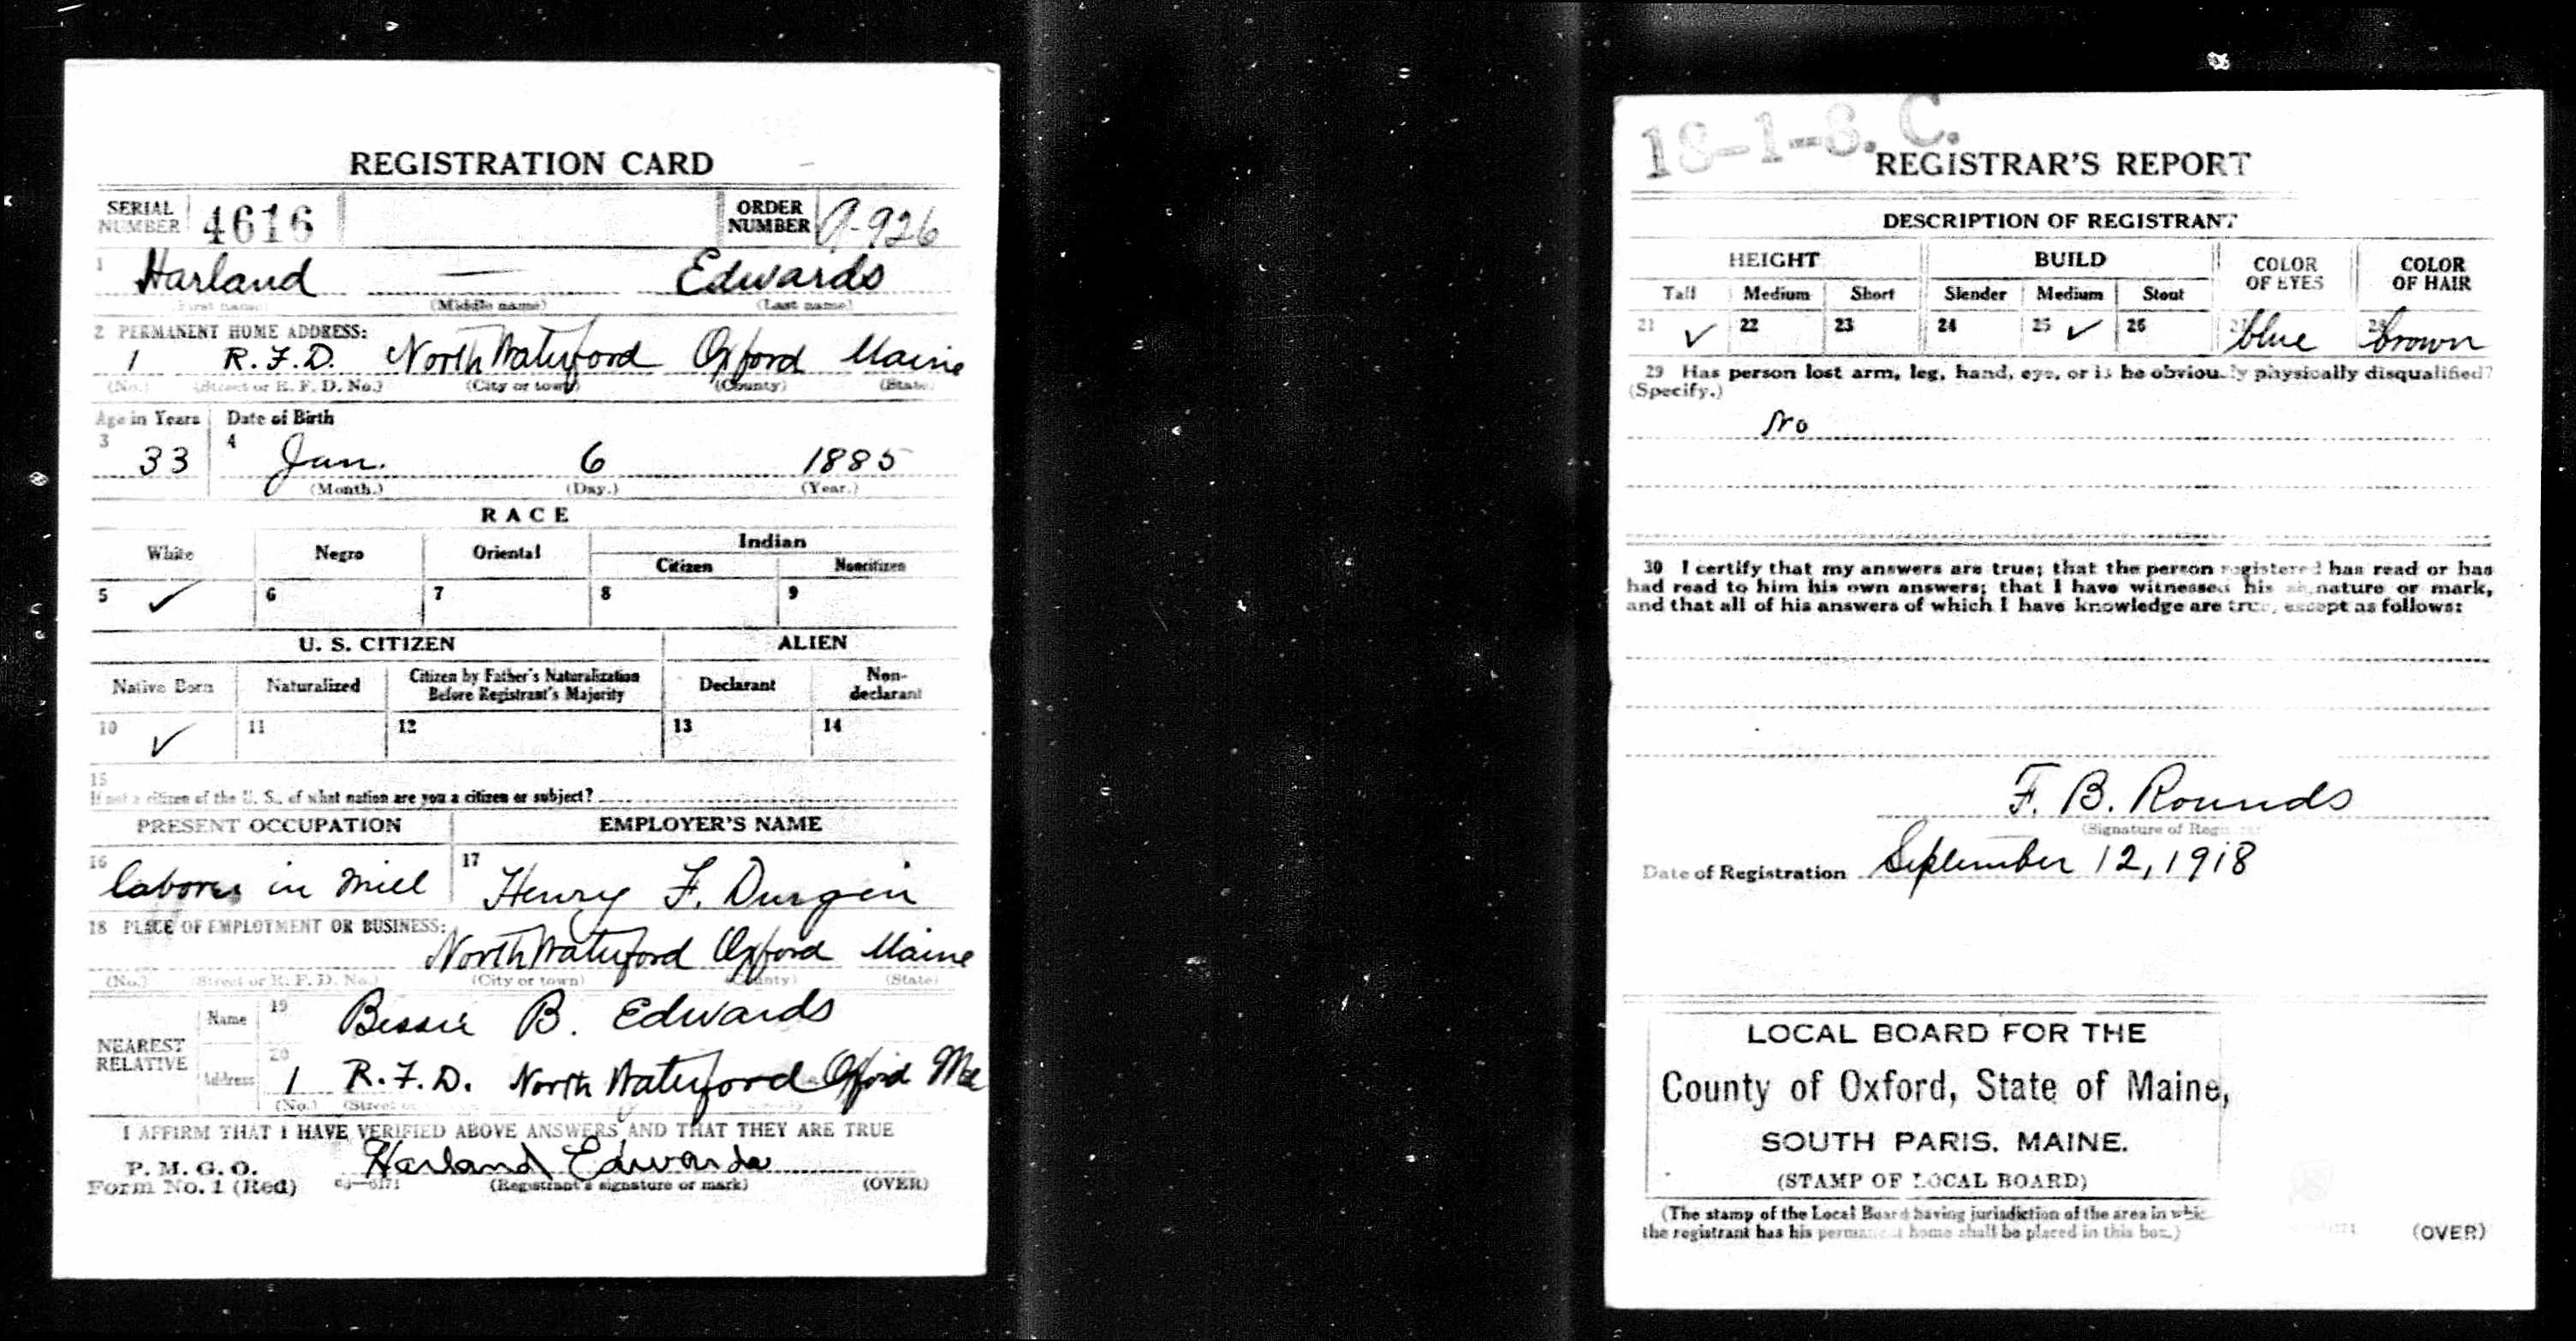 REGISTRATION CARD
SERIAL NUMBER 4616 ORDER NUMBER A-926
1 Harland — Edwards
(First name) (Middle name) (Last name)
2 PERMANENT HOME ADDRESS:
1 R.F.D. North Waterford Oxford Maine
(No.) (Street or R. F. D. No.) (City or town) (County) (State)
Age in Years Date of Birth
3 33 4 Jan. 6 1885
(Month.) (Day.) (Year.)
RACE
White Negro Oriental Indian
Citizen Noncitizen
5 ✓ 6 7 8 9
U. S. CITIZEN ALIEN
Native Born Naturalized Citizen by Father's Naturalization Before Registrant's Majority Declarant Non-declarant
10 ✓ 11 12 13 14
15
If not a citizen of the U. S., of what nation are you a citizen or subject?
PRESENT OCCUPATION EMPLOYER'S NAME
16 laborer in mill 17 Henry F. Durgin
18 PLACE OF EMPLOYMENT OR BUSINESS:
North Waterford Oxford Maine
(No.) (Street or R. F. D. No.) (City or town) (County) (State)
NEAREST RELATIVE
Name 19 Bessie B. Edwards
Address 20 1 R.F.D. North Waterford Oxford Me
(No.) (Street or
I AFFIRM THAT I HAVE VERIFIED ABOVE ANSWERS AND THAT THEY ARE TRUE
P. M. G. O.
Form No. 1 (Red) Harland Edwards
(Registrant's signature or mark) (OVER)
18-1-8. C.
REGISTRAR'S REPORT
DESCRIPTION OF REGISTRANT
HEIGHT BUILD COLOR OF EYES COLOR OF HAIR
Tall Medium Short Slender Medium Stout
21 ✓ 22 23 24 25 ✓ 26 27 blue 28 brown
29 Has person lost arm, leg, hand, eye, or is he obviously physically disqualified?
(Specify.)
No
30 I certify that my answers are true; that the person registered has read or has
had read to him his own answers; that I have witnessed his signature or mark,
and that all of his answers of which I have knowledge are true, except as follows:
F. B. Rounds
(Signature of Reg
Date of Registration September 12, 1918
LOCAL BOARD FOR THE
County of Oxford, State of Maine,
SOUTH PARIS, MAINE.
(STAMP OF LOCAL BOARD)
(The stamp of the Local Board having jurisdiction of the area in which
the registrant has his permanent home shall be placed in this box.)
(OVER)